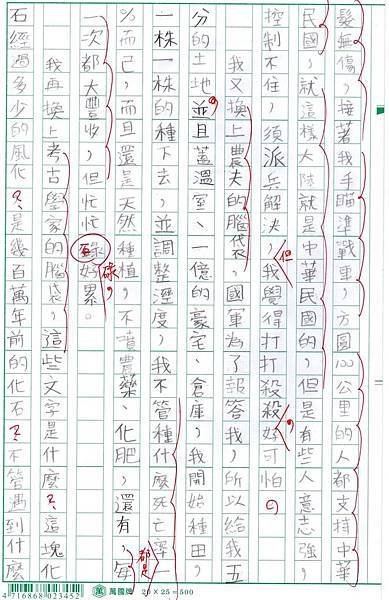 髮無傷，接著我手瞄準戰車，方圓100公里的人都支持中華
民國，就這樣大陸就是中華民國的，但是有些人意志強，
控制不住，須派兵解決，我覺得打打殺殺好可怕。
但
我又換上農夫的腦袋，國軍為了報答我，所以給我五
分的土地，並且蓋溫室、一億的豪宅、倉庫，我開始種田，
一株一株的種下去，並調整溼度，我不管種什麼死亡率一
都是
%而已，而且還是天然種植，不噴農藥、化肥，還有，每
一次都大豐收，但忙忙好累。
碌，
我再換上考古學家的腦袋，這些文字是什麼？這塊化
石經過多少的風化？是幾百萬年前的化石？不管遇到什麼
4716868023452
萬國牌 20×25=500